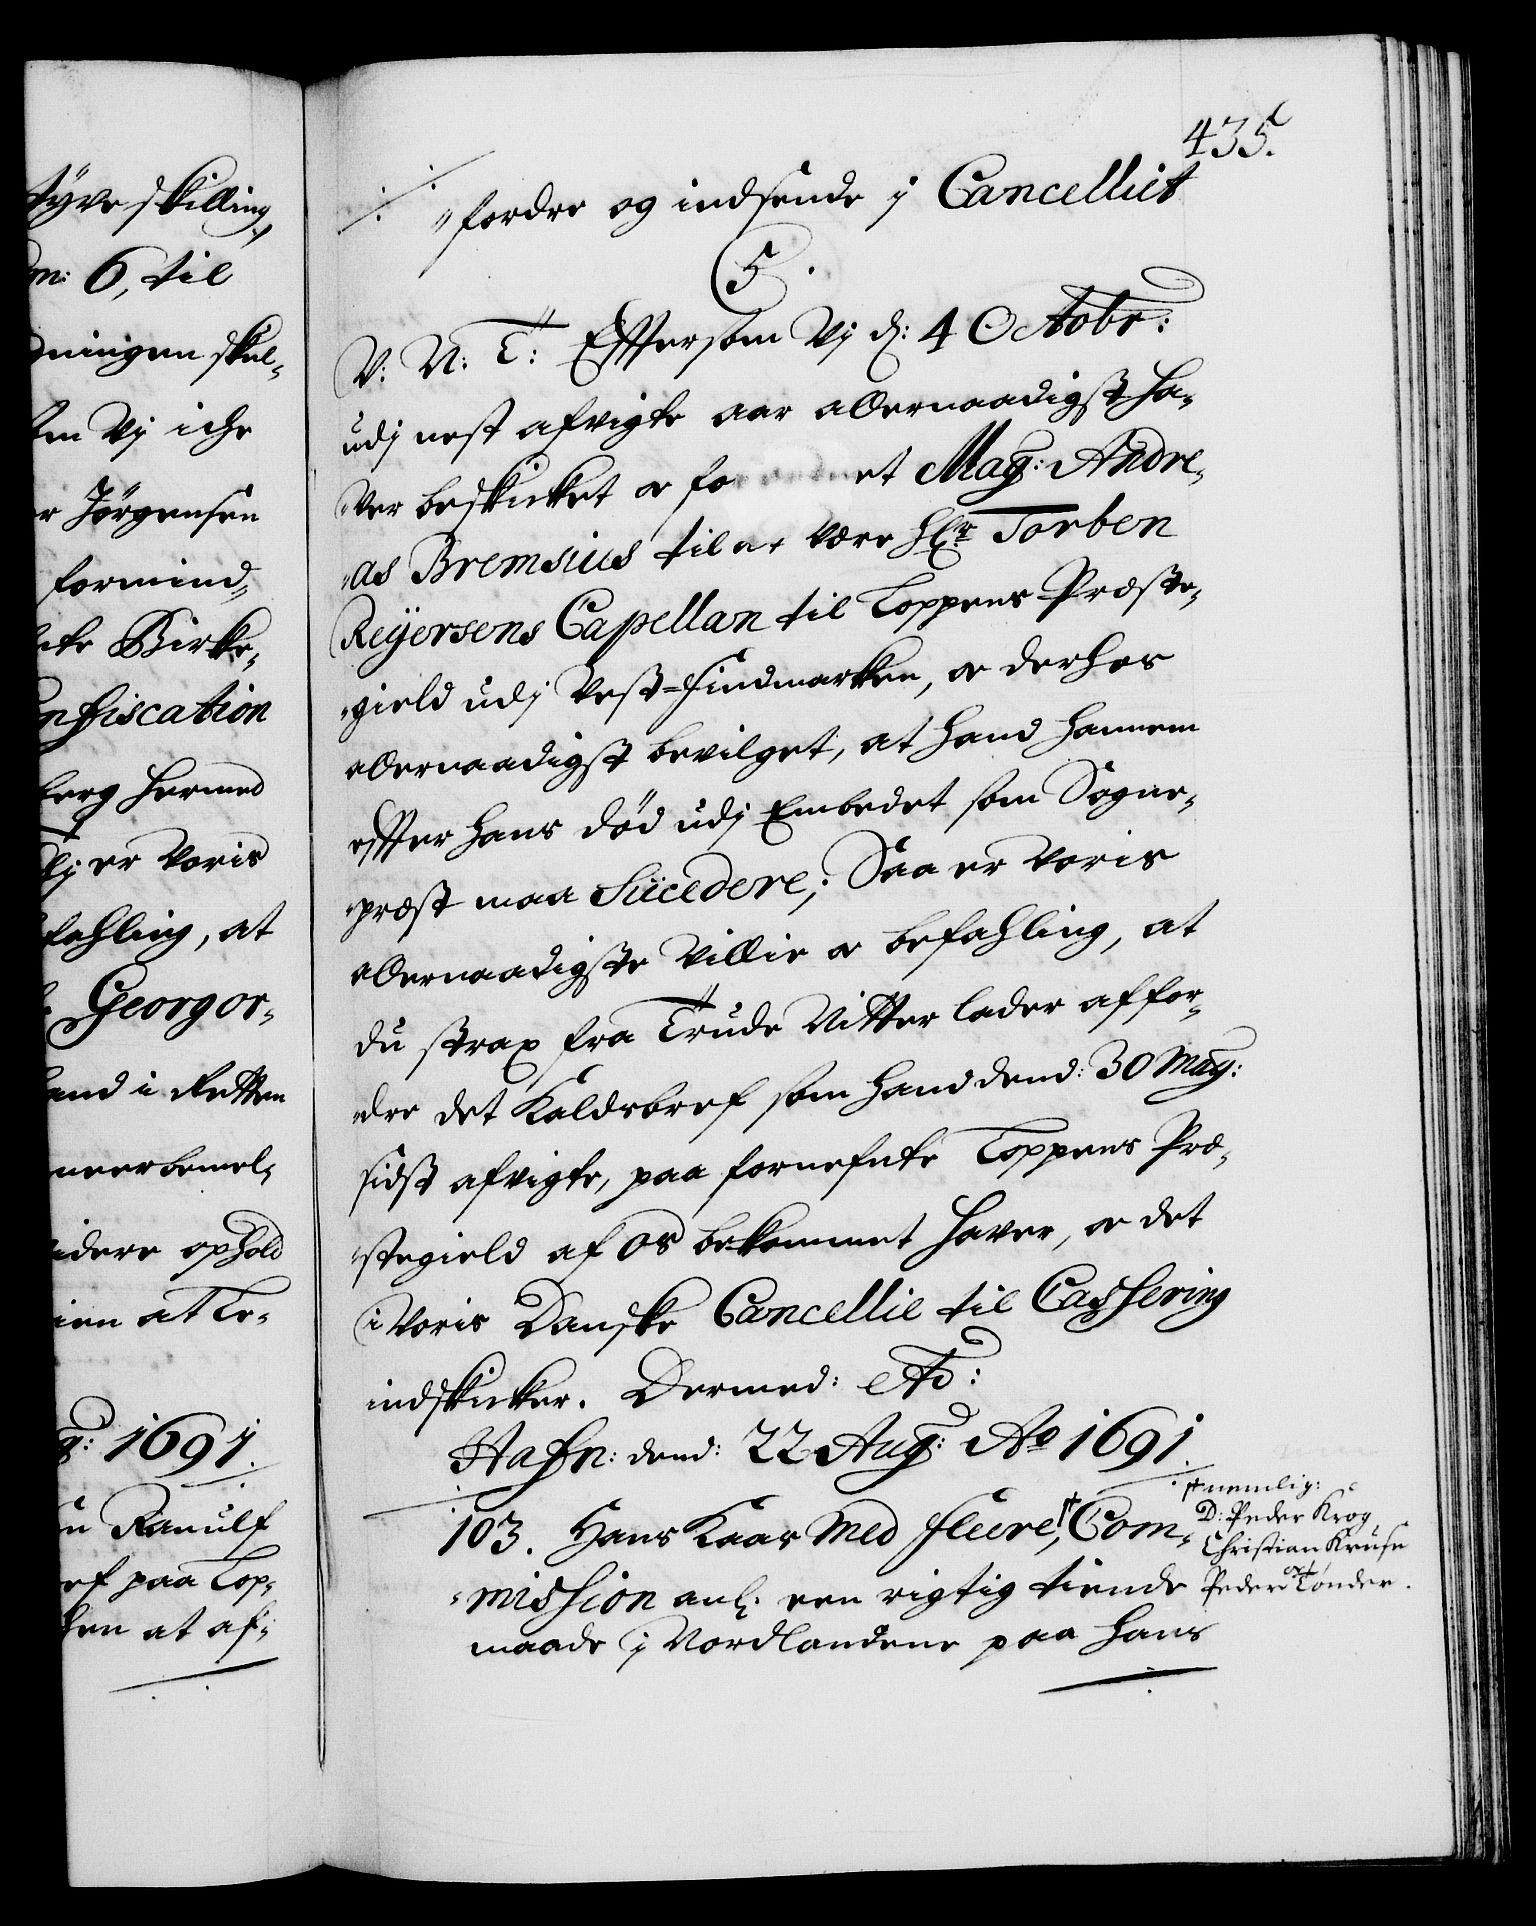 tÿve skilling,
6, til
ningen skul-
Vj iche
r Jørgensen
formind-
Birke-
nfiscation
berg hermed
er Voris
fahling, at
Georgor-
and i Retten
meerbemel-
idere ophold
ien at le-
1691.
Ranulf
ef paa Lop-
hen at af-
435.
"fordre og indsende j Cancelliet
5.
V: N: T: Effter som Vj d: 4 Octobr:
udj nest afvigte aar allernaadigst ha-
ver beskicket oc fo et Mag: Andre-
as Bremsius til at være Hr Torben
Reÿersens Capellan til Loppens Præste-
gield udj Vest-Findmarken, oc derhos
allernaadigst bevilget, at hand hannem
effter hans død udj Embedet som Sogne-
præst maa Succedere; Saa er Voris
allernaadigste Villie oc befahling, at
du strax fra Trude Nitter lader affor-
dre det Kaldsbref som hand dend: 30 Maÿ:
sidst afvigte, paa fornefnte Loppens Præ-
stegield af os bekommet hafver, oc det
i Voris Danske Cancellie til Casshering
indskicker. Dermed: etc:
Hafn: dend: 22 Aug: Ao 1691.
103. Hans Kaas med fleere, Com-
mission anl. een rigtig tiende
maade i Nordlandene paa hans
nemlig:
D: Peder Krog,
Christian Kruse
Peder Tønder.